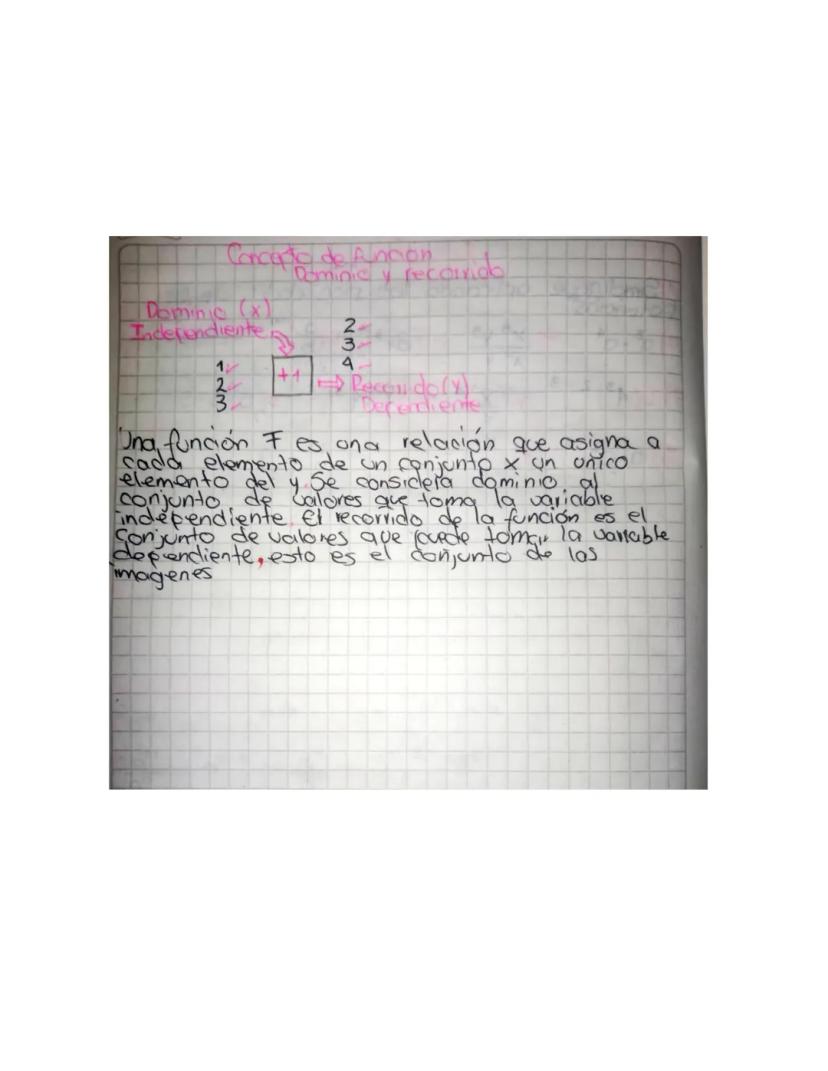 Concepto de función
Dominio y recorrido
Dominio (x)
Independiente
2
3
4
1
2
3
+1
⇒ Recorrido (y)
Dependiente
Una función F es una relación que asigna a
cada elemento de un conjunto x un único
elemento del y. Se considera dominio al
conjunto de valores que toma la variable
independiente. El recorrido de la función es el
conjunto de valores que puede tomar la variable
dependiente, esto es el conjunto de las
imagenes